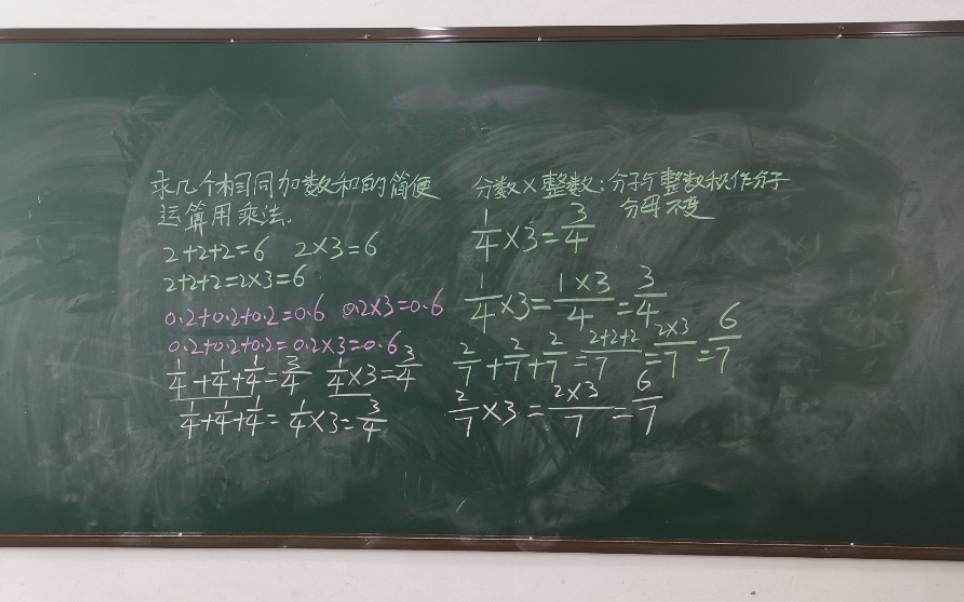 求几个相同加数和的简便
运算用乘法.
2+2+2=6 2×3=6
2+2+2=2×3=6
0.2+0.2+0.2=0.6 0.2×3=0.6
0.2+0.2+0.2=0.2×3=0.6
1/4+1/4+1/4=3/4 1/4×3=3/4
1/4+1/4+1/4=1/4×3=3/4
分数×整数:分子与整数积作分子
分母不变
1/4×3=3/4
1/4×3=1×3/4=3/4
2/7+2/7+2/7=2+2+2/7=2×3/7=6/7
2/7×3=2×3/7=6/7